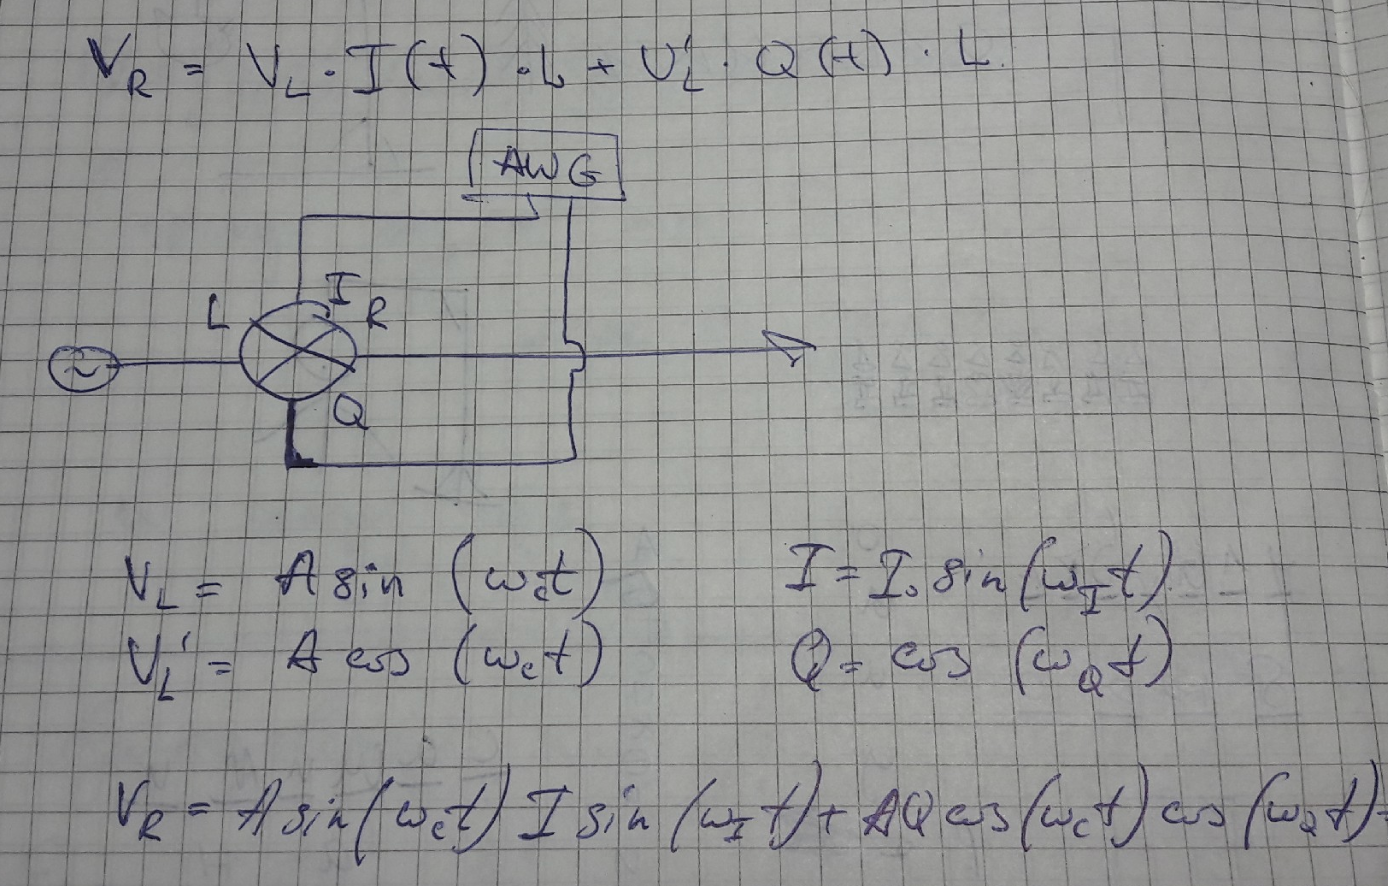 V_R = V_L · I(t) · L + U'_L · Q(t) · L
AWG
I
L
R
~
Q
V_L = A sin (ω_c t)
I = I₀ sin (ω_I t)
V'_L = A cos (ω_c t)
Q = cos (ω_Q t)
V_R = A sin (ω_c t) I sin (ω_I t) + A Q cos (ω_c t) cos (ω_Q t)